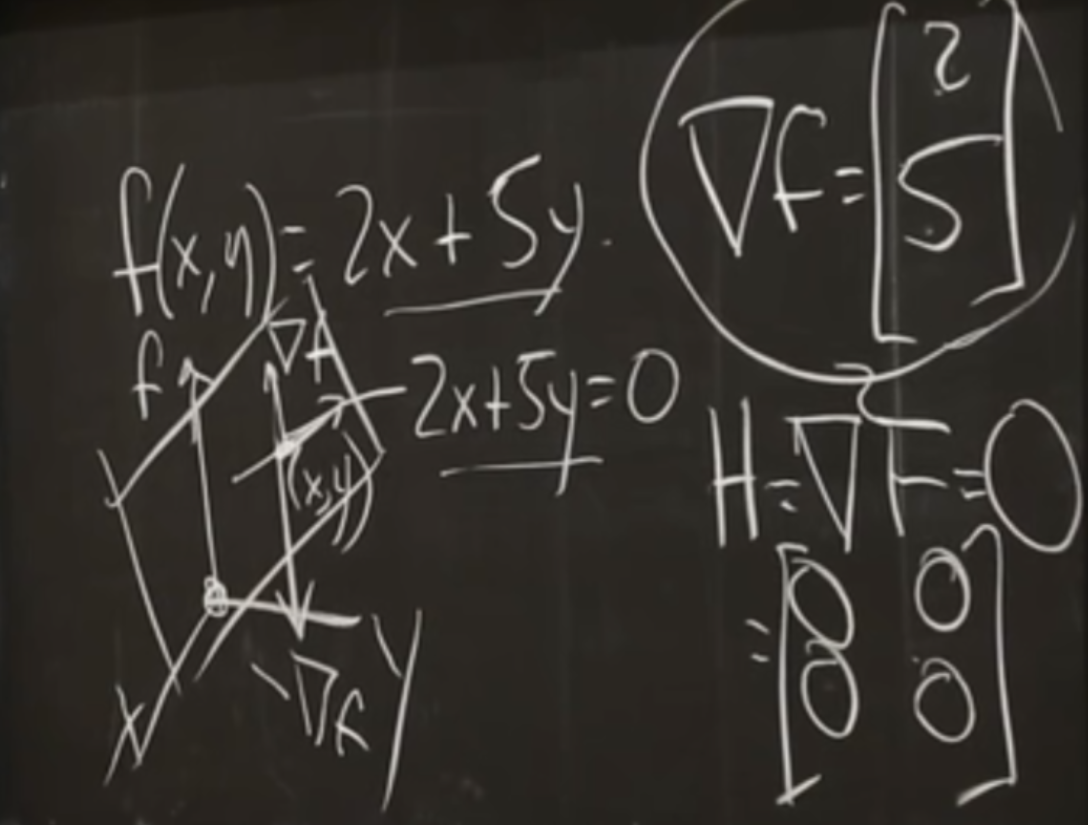 f(x,y) = 2x + 5y.
∇f = [2 5]
f
∇f
2x+5y=0
(x,y)
H = ∇F = 0
= [0 0
0 0]
x
-∇f
y